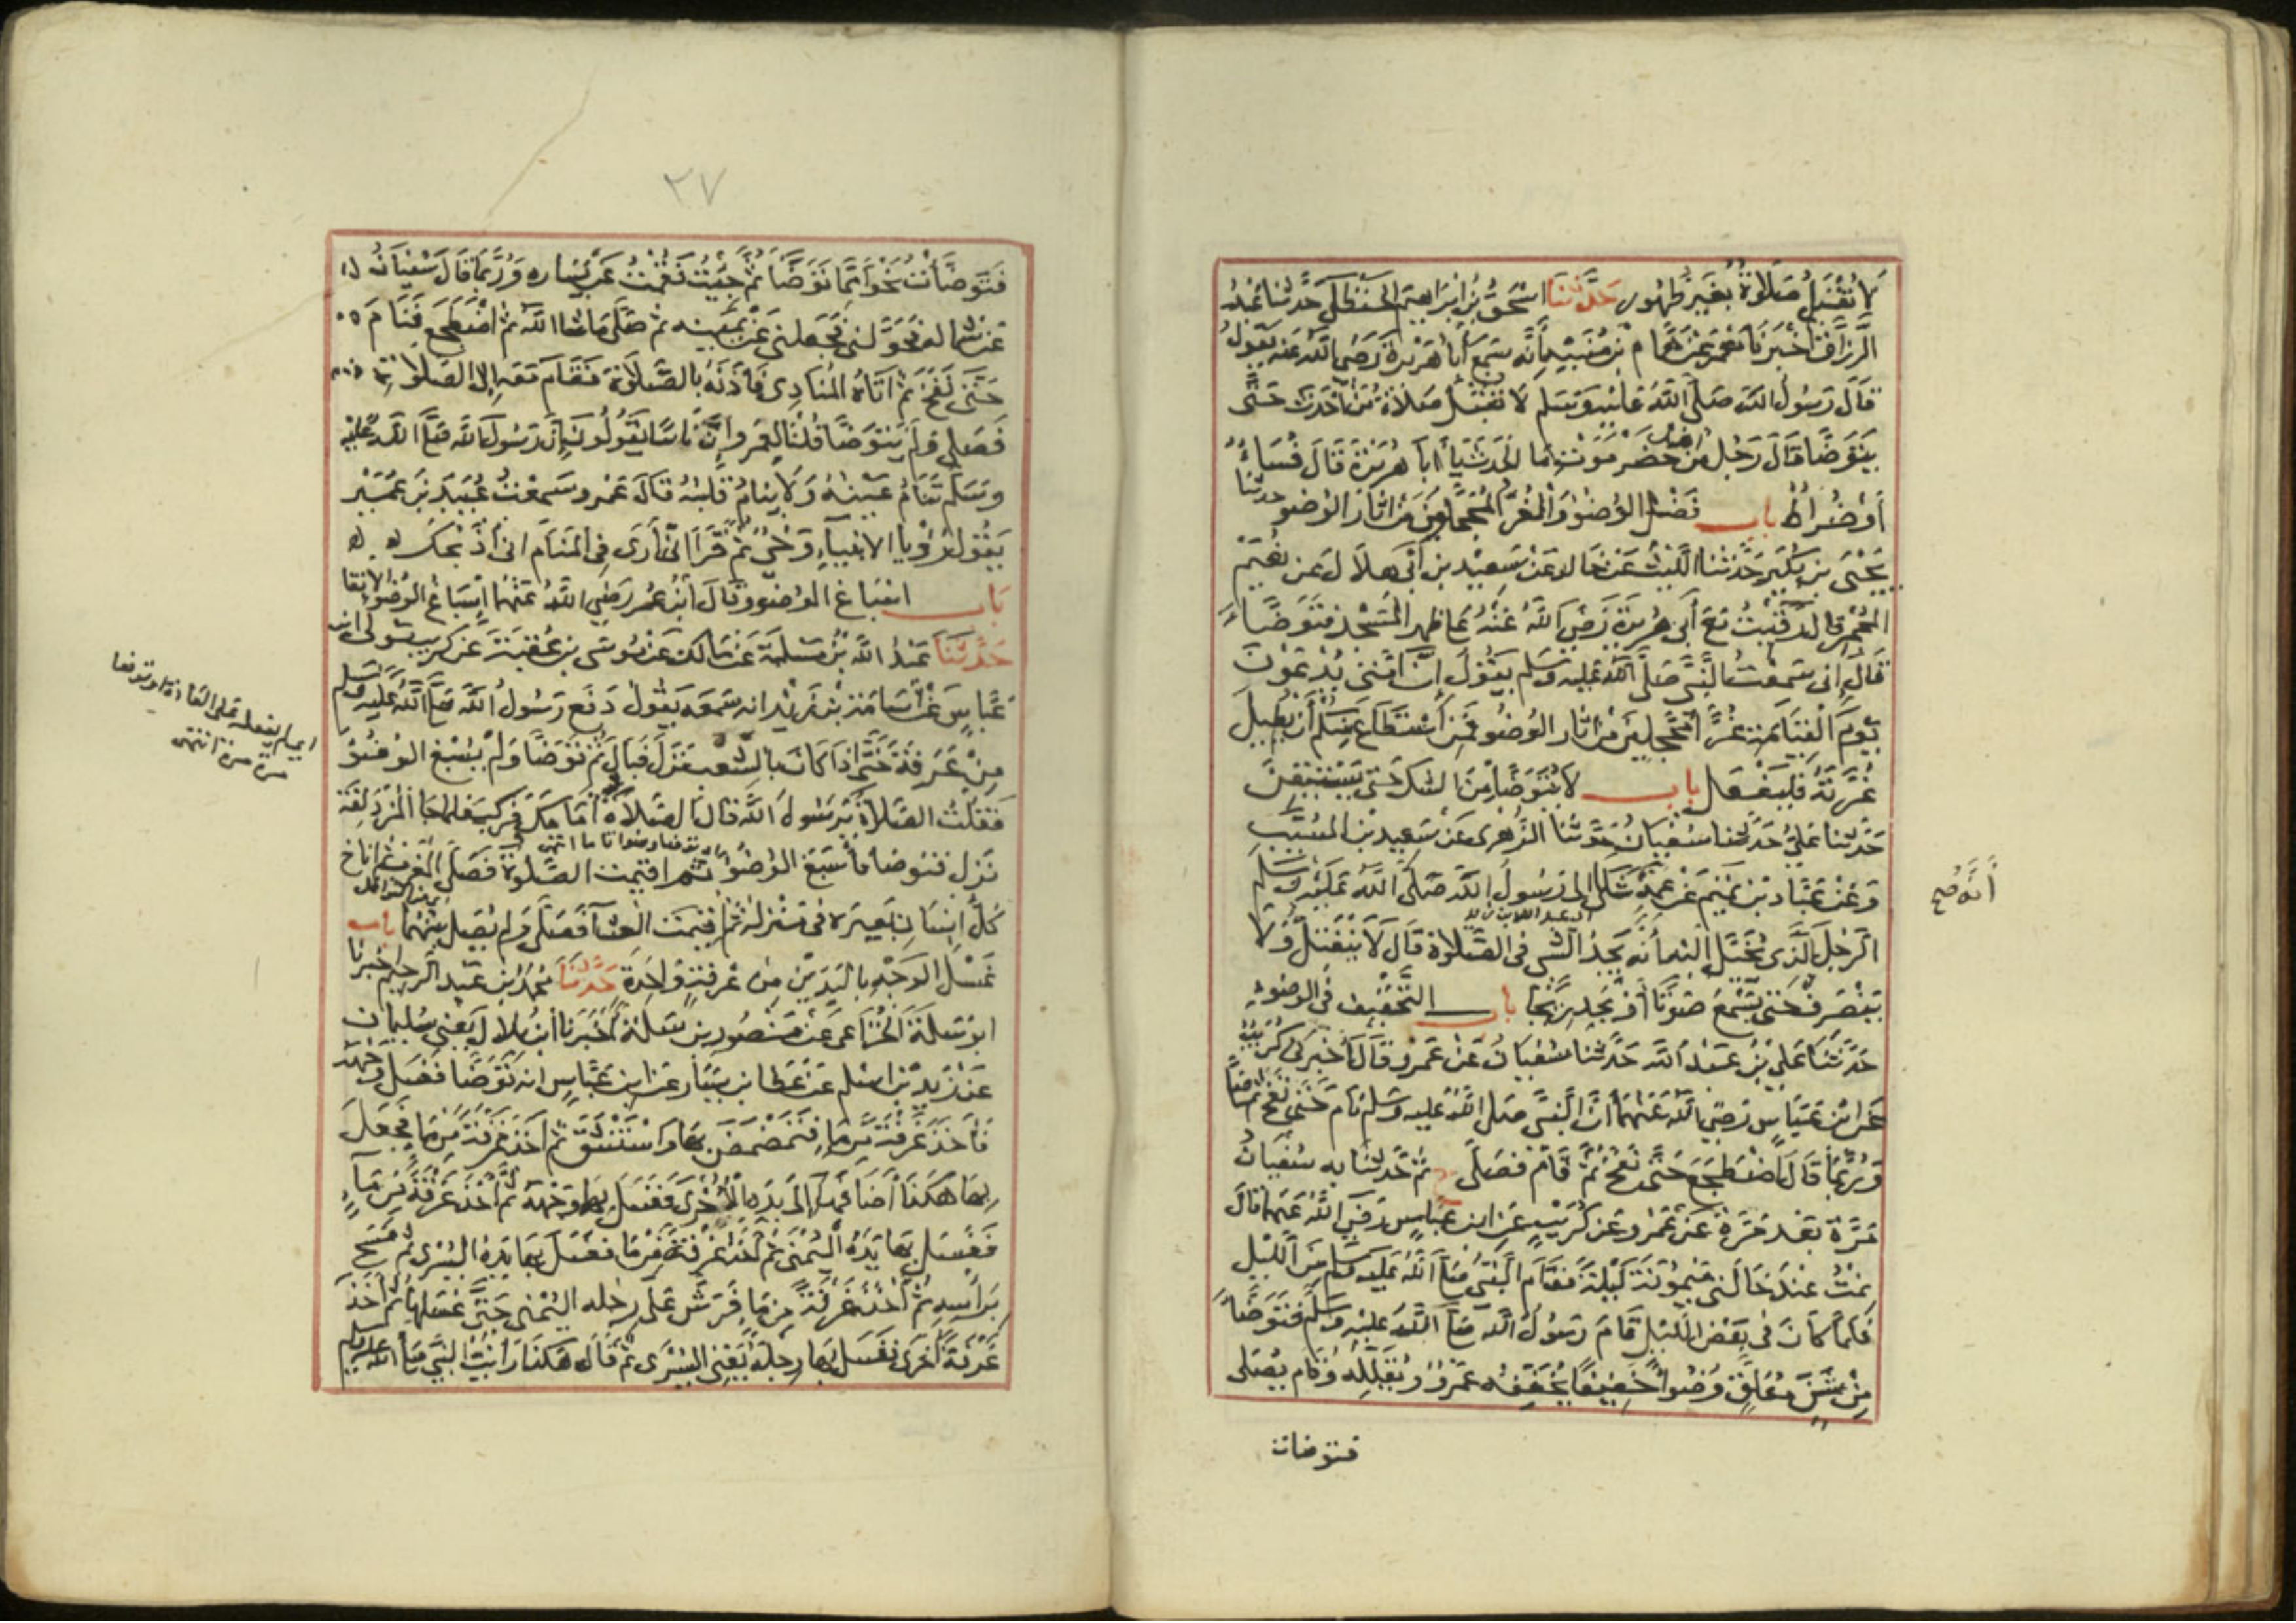 لا تُقْبَلُ صَلَاةٌ بِغَيرِ طُهُور حَدَّثَنَا اسْحٰقُ بْنُ ابْرَاهِيمَ الْحَنْظَلِي حَدَّثنا عَبْدُ
الرَّزَّاقِ أَخْبَرَنَا مَعْمَرٌ عَنْ هَمَّام بْنِ مُنَبِّهٍ أَنَّه سَمِعَ أَبَا هُرَيْرَةَ رَضِيَ اللَّه عَنه يَقُولُ
قَالَ رَسُولُ الله صَلَّى اللَّهُ عَلَيْهِ وَسَلم لَا تُقْبَلُ صَلَاةُ مَنْ أَحْدَثَ حَتَّى
يَتَوَضَّأَ قَالَ رَجُلٌ مِنْ حَضْرَمَوْتَ مَا الْحَدَثُ يَا أَبَا هُرَيْرَةَ قَالَ فُسَاءٌ
أَوْ ضُرَاطٌ باب فَضْلِ الوُضُوءِ وَالْغُرُّ الْمُحَجَّلُونَ مِنْ اثَارِ الْوُضُو حدثنا
يَحْيَى بن بُكَيْرٍ حَدَّثنا اللَّيْثُ عَنْ خَالد عَنْ سَعِيْدِ بن أَبِي هِلَالٍ عَن نُعَيْمٍ
الْمُجْمِرِ قال رَقِيْتُ مَعَ أَبِي هُرَيْرَةَ رَضِيَ اللَّهُ عَنْهُ عَلَى ظهر الْمَسْجِدِ فَتَوَضَّأَ
فَقَالَ اِنِّى سَمِعْتُ النَّبِيَّ صَلَّى اللَّهُ عَلَيه وَسَلم يَقُولُ إِنَّ أُمَّتِي يُدْعَوْنَ
يَوْمَ الْقِيَامَةِ غُرًّا مُحَجَّلِيْنَ مِنْ اثَار الوُضُوءِ فَمَنِ اسْتَطَاعَ مِنْكُمْ أَنْ يُطِيلَ
غُرَّتَهُ فَلْيَفْعَل باب لَا يَتَوَضَّأُ مِنَ الشك حَتَّى يَسْتَيْقِنَ
حَدَّثنا عَليٌّ حَدَّثنا سُفْيَانُ حَدَّثَنا الزُّهْرِى عَنْ سَعِيدِ بن المُسَيَّبِ
وَعَنْ عَبَّادِ بْنِ تَمِيمٍ عَنْ عَمِّهِ شَكَا إِلَى رَسُولِ اللَّه صَلَّى اللَّهُ عَلَيْهِ وَسَلم
أَنَّهُ صح
الرَّجُلَ الَّذِى يُخَيَّلُ إِلَيْهِ أَنَّهُ يَجِدُ الشَّىْ فى الصَّلَاة قَالَ لَا يَنْفَتِلْ وَلَا
يَنْصَرِفْ حَتَّى يَسْمَعَ صَوْتًا أَوْ يَجِدَ رِيْحًا باب التَّخْفِيْفِ فِى الوضوء
حَدَّثَنَا عَلِيُّ بْنُ عَبْدِ اللَّه حَدَّثنا سُفْيَانُ عَنْ عَمْرٍو قَالَ أَخْبَرَنِى كُرَيْبٌ
عَنِ ابْنِ عَبَّاسٍ رَضِيَ اللَّهُ عَنْهُمَا أَنَّ النَّبِيَّ صَلى اللَّهُ عَليه وَسَلم نَامَ حَتَّى نَفَخَ ثُمَّ صَلَّى
وَرُبَّمَا قَالَ اضْطَجَعَ حَتَّى نَفَخَ ثُمَّ قَامَ فَصَلَّى ثُمَّ حَدَّثنا به سُفْيَانُ
مَرَّةً بَعْدَ مَرَّةٍ عَنْ عَمْرٍو عَن كُرَيْبٍ عَنِ ابن عَبَّاسٍ رَضِيَ اللَّهُ عَنهما قالَ
بِتُّ عِنْدَ خَالَتِي مَيْمُونَةَ لَيْلَةً فَقَامَ النَّبِيُّ صَلَّى اللَّهُ عَلَيه وَسَلم مِنَ اللَّيْلِ
فَلَمَّا كَانَ فى بَعْضِ اللَّيْلِ قَامَ رَسُولُ اللَّه صَلَّى اللَّهُ عَلَيْهِ وَسَلَّم فَتَوَضَّأَ
مِنْ شَنٍّ مُعَلَّقٍ وُضُوءًا خَفِيْفًا يُخَفِّفُه عَمْرٌو وَيُقَلِّلُهُ وَقَام يُصَلى
فتوضات
٢٧
فَتَوَضَّأْتُ نَحْوًا مِمَّا تَوَضَّأَ ثُمَّ جِئْتُ فَقُمْتُ عَنْ يَسَاره وَرُبَّمَا قَالَ سُفْيَانُ
عَنْ شماله فَحَوَّلَنِي فَجَعلنى عَنْ يَمِيْنِه ثم صَلَّى مَا شا اللَّه ثُمَّ اضْطَجَعَ فَنَامَ
حَتَّى نَفَخَ ثُمَّ أَتَاهُ الْمُنَادِى فَآذَنَهُ بِالصَّلَوٰةِ فَقَامَ مَعَه إِلَى الصَّلَوٰةِ
فَصَلى وَلَمْ يَتَوَضَّأ قُلْنَا لِعَمْرٍو إِنَّ نَاسًا يَقُولُونَ إِنَّ رَسُولَ اللَّه صَلَّى اللَّهُ عَلَيْهِ
وَسَلم تَنَامُ عَيْنُهُ وَلَا يَنَامُ قَلْبُهُ قَالَ عَمْرٌو سَمِعْتُ عُبَيْدَ بْنَ عُمَيْرٍ
يَقُولُ رُؤيَا الانبيآءِ وَحْيٌ ثُمَّ قَرَأَ إِنِّى أَرَى فِى الْمَنَامِ أَنِّى أَذْبَحُكَ
بَاب اسْبَاغِ الوُضُوءِ وَقَالَ ابْنُ عُمَر رَضِيَ اللَّهُ عَنْهُمَا إِسْبَاغُ الوُضُوءِ الْانْقَا
حَدَّثَنَا عَبْدُ اللَّه بْنُ مَسْلَمَةَ عَنْ مَالِكٍ عَنْ مُوسَى بن عُقْبَةَ عَنْ كُرَيبٍ مَولى ابن
عَبَّاسٍ عَنْ أُسَامَةَ بْنِ زَيْدٍ انه سَمِعَه يَقُولُ دَفَعَ رَسُولُ اللَّه صَلَّى اللَّهُ عَلَيْهِ وَسَلم
مِنْ عَرَفَةَ حَتَّى إِذَا كَانَ بِالشِّعْبِ نَزَلَ فَبَالَ ثُمَّ تَوَضَّأَ وَلَمْ يُسْبِغِ الوُضُوْءَ
مرة مرة انتهى
فَقُلْتُ الصَّلَاةَ يَا رَسُولَ اللَّه قَالَ الصَّلَاةُ أَمَامَكَ فَرَكِبَ فَلما جَا الْمُزْدَلِفَةَ
نَزَل فَتَوضأ فأَسْبَغَ الوُضُوءَ ثُمَّ اقيمت الصَّلوٰةُ فَصَلَّى الْمَغْرِبَ ثُمَّ اناخَ
كُلُّ إِنْسَانٍ بَعِيْرَهُ فى مَنْزِلِه ثُمَّ أُقِيْمَتِ الْعِشَآءُ فَصَلَّى وَلم يُصَلِّ بَيْنَهُما باب
غَسْلِ الوَجْهِ بِاليَدَيْنِ مِنْ غَرْفَةٍ وَاحِدَةٍ حَدَّثَنَا مُحمَّدُ بْنُ عَبْدِ الرَّحِيم أَخْبَرَنَا
ابُو سَلَمَةَ الْخُزَاعِيُّ مَنْصُورُ بن سَلَمَةَ أَخْبَرَنَا ابْنُ بِلَالٍ يَعْنِي سُلَيْمَانَ
عَنْ زَيْدِ بْنِ اسْلم عَنْ عَطا بن يَسَارٍ عَنِ ابن عَبَّاسٍ انه تَوَضَّأَ فَغَسَلَ وَجْهَهُ
فَأَخَذَ غَرْفَةً مِنْ مَاءٍ فَتَمَضْمَضَ بِهَا وَاسْتَنْشَقَ ثُمَّ أَخَذَ غَرْفَةً مِنْ مَاءٍ فَجَعَلَ
بِهَا هٰكَذَا أَضَافَهَا إِلَى يَدِهِ الْأُخْرَى فَغَسَلَ بِهَا وَجْهَهُ ثُمَّ أَخَذَ غَرْفَةً مِنْ مَاءٍ
فَغَسَلَ بِهَا يَدَهُ الْيُمْنَى ثُمَّ أَخَذَ غَرْفَةً مِنْ مَاءٍ فَغَسَلَ بِهَا يَدَهُ اليُسْرَى ثُمَّ مَسَحَ
بِرَأْسِهِ ثُمَّ أَخَذَ غَرْفَةً مِنْ مَاءٍ فَرَشَّ عَلَى رِجْلِهِ اليُمْنَى حَتَّى غَسَلَهَا ثُمَّ أَخَذَ
غَرْفَةً أُخْرَى فَغَسَلَ بِهَا رِجْلَهُ يَعْنِي اليُسْرَى ثُمَّ قَالَ هَكَذَا رَأَيْتُ النَّبِيَّ صَلَّى اللَّهُ عَلَيْهِ وَسَلم